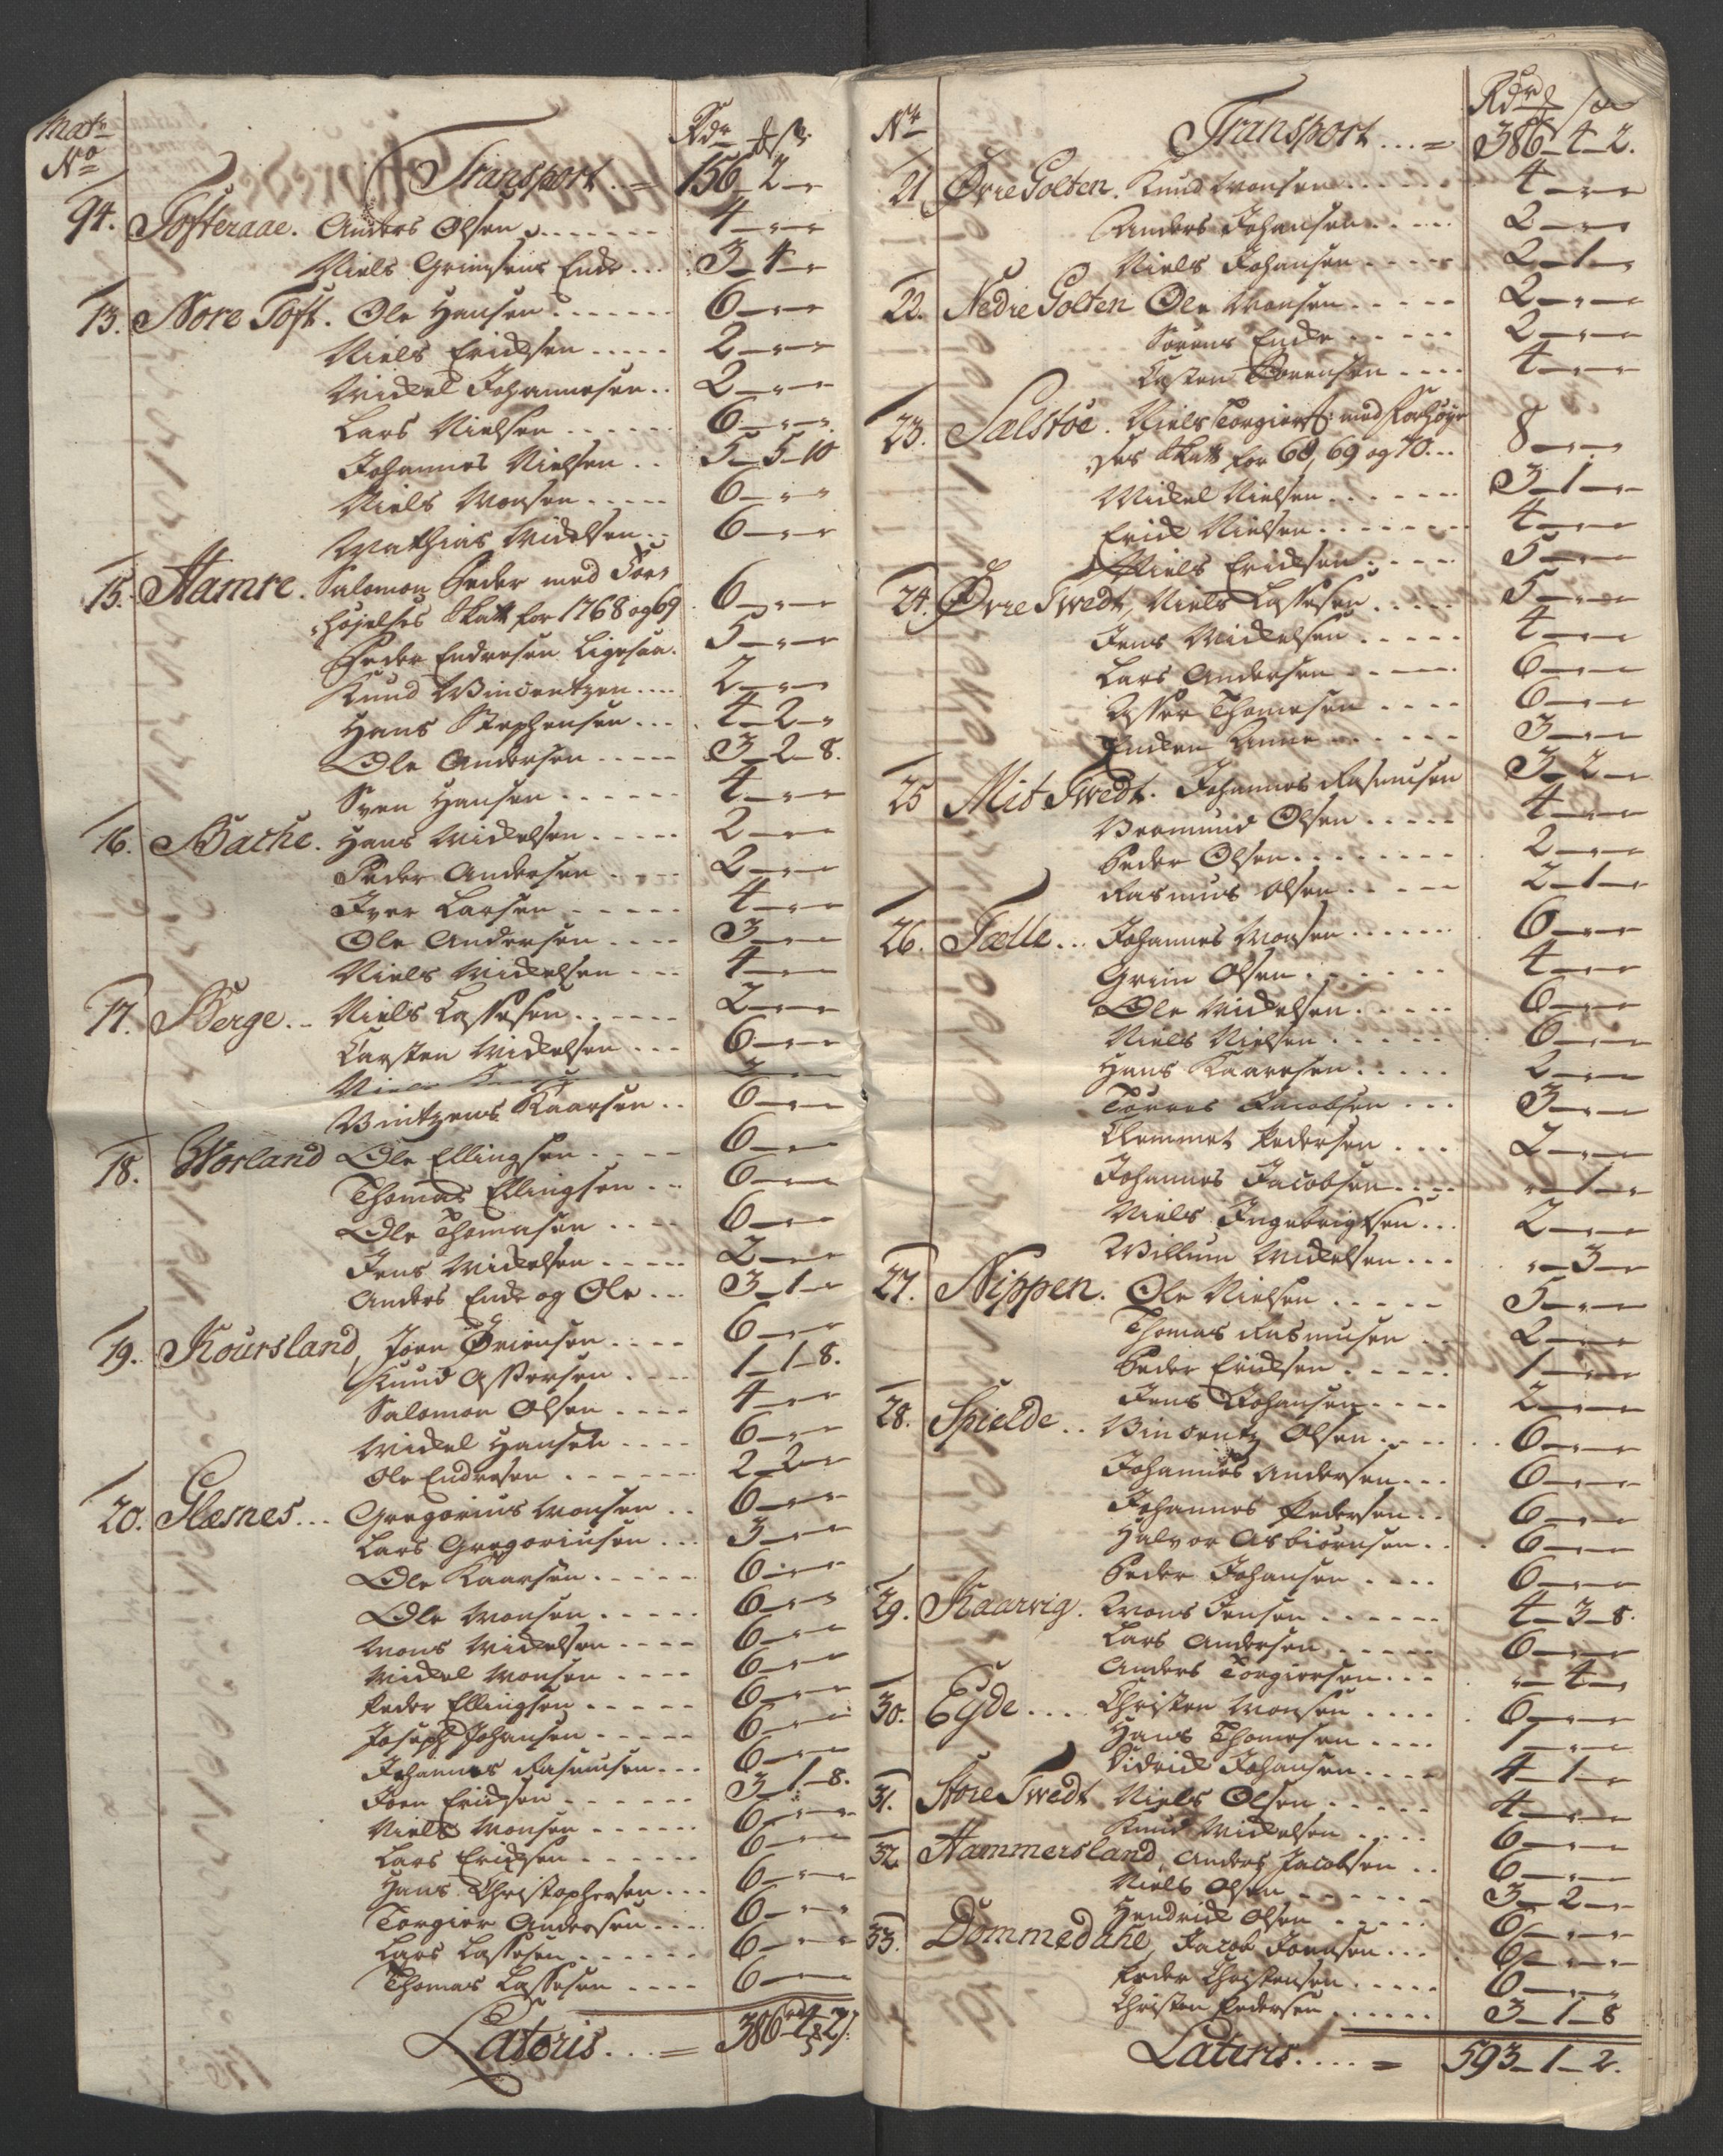 Matr
No Rdr ß
Transport .. = 156 2 "
94. Tofteraae. Anders Olsen ....... 4 " "
Niels Grimsens Enke ... 3 4 "
13. Nore Toft. Ole Hansen ....... 6 " "
Niels Ericksen ..... 2 " "
Mickel Johannesen .. 2 " "
Lars Nielsen ...... 6 " "
Johannes Nielsen .. 5 5 10
Niels Monsen ..... 6 " "
Mathias Mickelsen .. 6 " "
15. Hamre. Salomon Peder med For
højelses Skatt for 1768 og 69 6 " "
Peder Endresen Ligesaa. 5 " "
Knud Vincentzen .... 2 " "
Hans Stephensen ... 4 2 "
Ole Andersen ..... 3 2 8.
Sven Hansen ...... 4 " "
16. Bache. Hans Mickelsen ..... 2 " "
Peder Andersen .... 2 " "
Iver Larsen ..... 4 " "
Ole Andersen .... 3 " "
Niels Mickelsen ... 4 " "
17. Berge .. Niels Lassesen ...... 2 " "
Carsten Mickelsen ... 6 " "
Vintzens Kaarsen .. 6 " "
18. Worland Ole Ellingsen .... 6 " "
Thomas Ellingsen ... 6 " "
Ole Thomasen .... 6 " "
Jens Mickelsen ..... 2 " "
Anders Enke og Ole ... 3 1 "
19. Koursland, Joen Briensen .... 6 " "
Knud Assersen .... 1 1 8.
Salomon Olsen .... 4 " "
Mickel Hansen .... 6 " "
Ole Endresen ...... 2 2 "
20. Glesnes ... Gregorius Monsen .. 6 " "
Lars Gregoriusen ... 3 " "
Ole Kaarsen ..... 6 " "
Ole Monsen ..... 6 " "
Mons Mickelsen .... 6 " "
Mickel Monsen .... 6 " "
Peder Ellingsen ..... 6 " "
Joseph Johansen ..... 6 " "
Johannes Rasmusen ... 6 " "
Joen Ericksen ...... 3 1 8.
Niels Monsen ...... 6 " "
Lars Ericksen ...... 6 " "
Hans Christophersen ... 6 " "
Torgier Andersen .... 6 " "
Lars Lassesen ...... 6 " "
Thomas Lassesen .... 6 " "
Lateris ... = 386 4 2
Nr Rdr
Transport ... = 386 4 2.
21 Øvre Golten. Knud Monsen ...... 4 " "
Anders Johansen ..... 2 " "
Niels Johansen ..... 2 1 "
22. Nedre Golten Ole Monsen ..... 2 " "
Sørens Enke ..... 2 " "
Casten Sørensen .... 4 " "
23. Selstøe. Niels Torgiers: med Forhøye
des Skatt for 68, 69 og 70 ... 8 " "
Mickel Nielsen ...... 3 1 "
Erick Nielsen ....... 4 " "
Niels Ericksen ..... 5 " "
24. Øvre Twedt, Niels Lassesen ..... 5 " "
Jens Mickelsen ..... 4 " "
Lars Andersen ..... 6 " "
Asser Thomesen .... 6 " "
Enken Anne ...... 3 " "
25 Mit Twedt. Johannes Rasmusen 3 2 "
Vermund Olsen ..... 4 " "
Peder Olsen ........ 2 " "
Rasmus Olsen ..... 2 1 "
26. Tælle ... Johannes Monsen ...... 6 " "
Grim Olsen ...... 4 " "
Ole Mickelsen ..... 6 " "
Niels Nielsen ..... 6 " "
Hans Kaaresen ..... 2 " "
Tørres Jacobsen ... 3 " "
Clemmet Pedersen ... 2 " "
Johannes Jacobsen .... " 1 "
Niels Ingebrigtsen ... 2 " "
Willum Mickelsen ... " 3 "
27. Nippen. Ole Nielsen ..... 5 " "
Thomas Rasmusen .. 2 " "
Peder Ericksen ..... 1 " "
Jens Johansen .... 2 " "
28. Spielde .. Vincentz Olsen .... 6 " "
Johannes Andersen ... 6 " "
Johannes Pedersen .. 6 " "
Halvor Asbiørnsen .. 6 " "
Peder Johansen .... 6 " "
29. Kaarvig. Mons Jensen ...... 4 3 8.
Lars Andersen ..... 6 " "
Anders Torgiersen ... " 4 "
30. Eyde .... Christen Monsen .... 6 " "
Hans Thomesen .... 1 " "
Didrick Johansen .... 4 1 "
31. Store Twedt Niels Olsen ..... 4 " "
Knud Mickelsen .... 6 " "
32. Hammersland, Anders Jacobsen .. 6 " "
Niels Olsen ...... 3 2 "
Hendrick Olsen ..... 6 " "
33. Dommedahl, Jacob Joensen ... 6 " "
Peder Christensen ..... 6 " "
Christen Pedersen ...... 3 1 8
Lateris .... = 593 1 2.